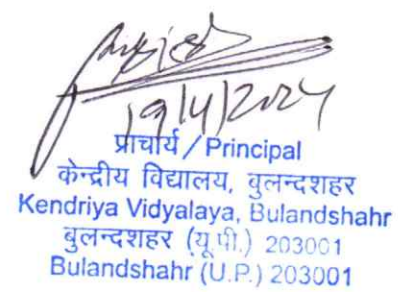 19/4/2024
प्राचार्य / Principal
केन्द्रीय विद्यालय, बुलन्दशहर
Kendriya Vidyalaya, Bulandshahr
बुलन्दशहर (यू.पी.) 203001
Bulandshahr (U.P.) 203001